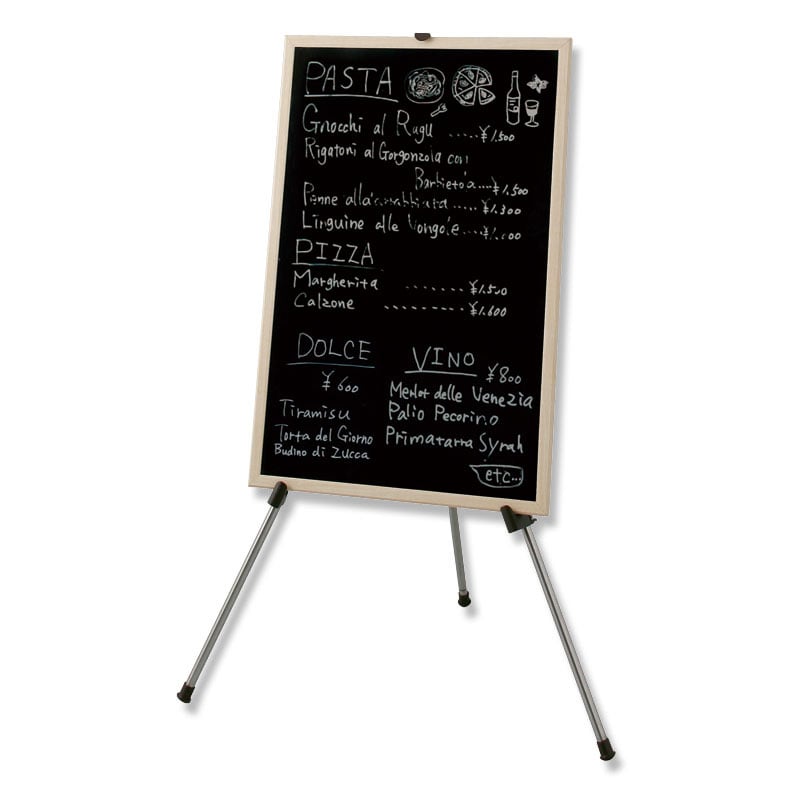 PASTA
Gnocchi al Ragu ..... ¥1.500
Rigatoni al Gorgonzola con
Barbieto'a....¥1.500
Penne alla'arrabbiata ..... ¥1.300
Linguine alle Vongole....
PIZZA
Margherita ....... ¥1.500
Calzone ......... ¥1.600
DOLCE
¥600
Tiramisu
Torta del Giorno
Budino di Zucca
VINO
¥800
Merlot delle Venezia
Palio Pecorino
Primatarra Syrah
etc...